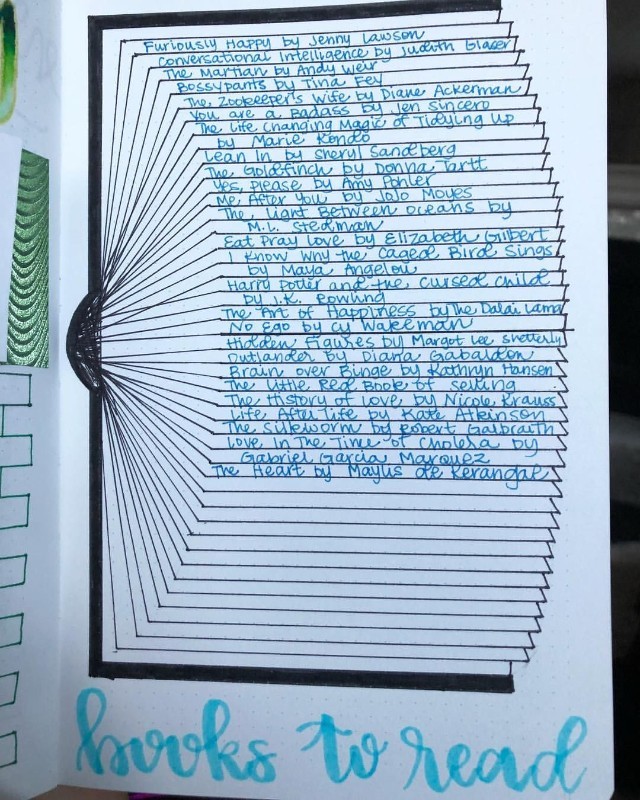 Furiously Happy by Jenny Lawson
Conversational Intelligence by Judith Glaser
The Martian by Andy Weir
Bossypants by Tina Fey
The Zookeeper's Wife by Diane Ackerman
You are a Badass by Jen Sincero
The Life Changing Magic of Tidying Up
by Marie Kondo
Lean In by Sheryl Sandberg
The Goldfinch by Donna Tartt
Yes, Please by Amy Pohler
Me After You by JoJo Moyes
The Light Between Oceans by
M.L. Stedman
Eat Pray Love by Elizabeth Gilbert
I Know Why the Caged Bird Sings
by Maya Angelou
Harry Potter and the Cursed Child
by J.K. Rowling
The Art of Happiness by The Dalai Lama
No Ego by Cy Wakeman
Hidden Figures by Margot Lee Shetterly
Outlander by Diana Gabaldon
Brain over Binge by Kathryn Hansen
The Little Red Book of Selling
The History of Love by Nicole Krauss
Life After Life by Kate Atkinson
The Silkworm by Robert Galbraith
Love In The Time of Cholera by
Gabriel Garcia Marquez
The Heart by Maylis de Kerangal
books to read